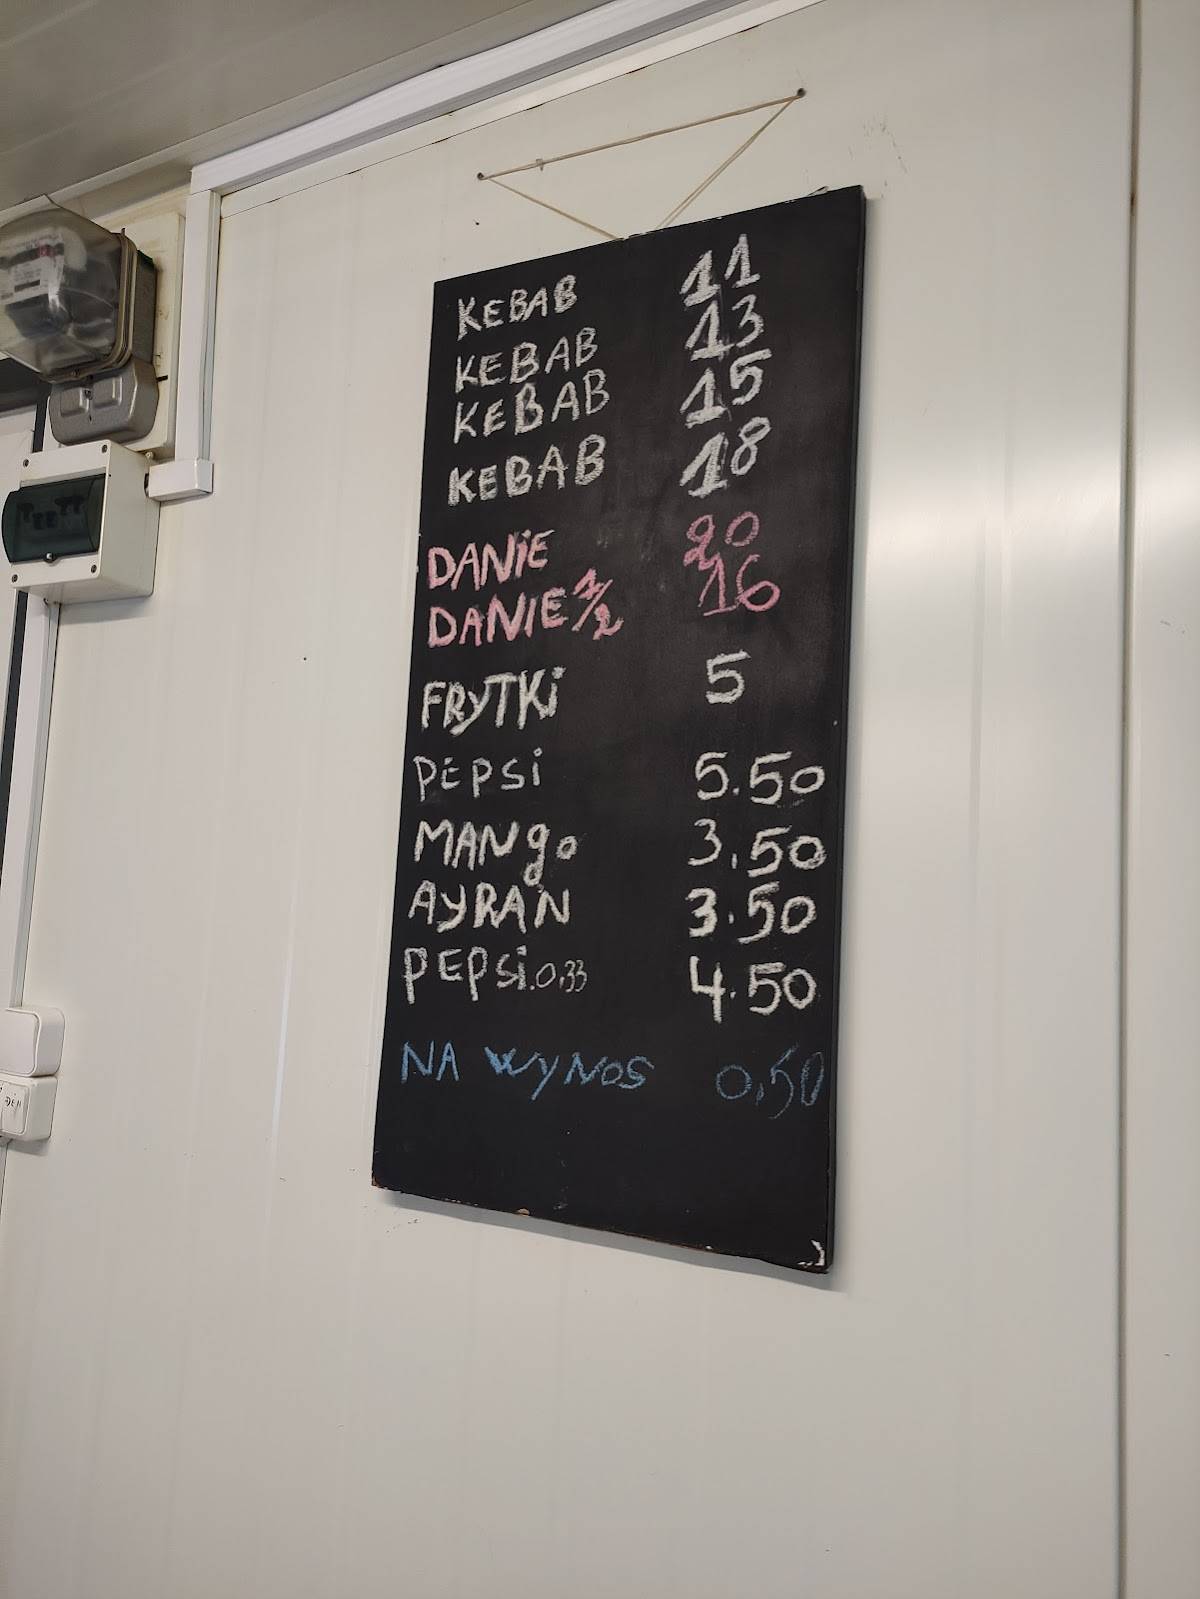 KEBAB 11
KEBAB 13
KEBAB 15
KEBAB 18
DANiE 20
DANIE 1/2 16
FRYTKi 5
PEPSi 5.50
MANgo 3.50
AYRAN 3.50
PEPSi.0,33 4.50
NA WYNOS 0,50